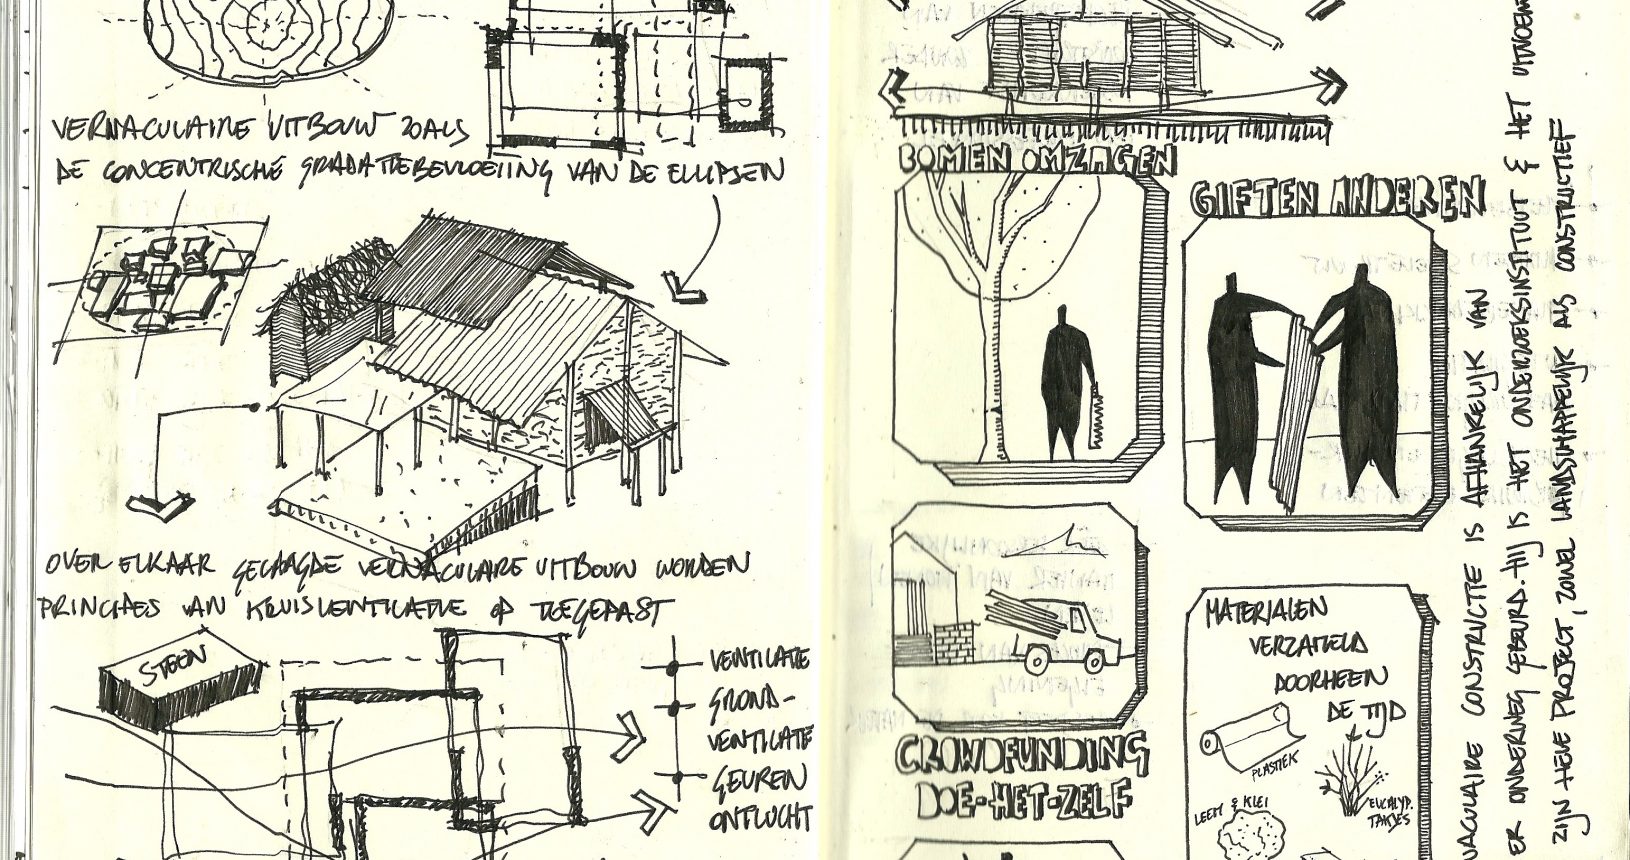 VERNACULAIRE UITBOUW ZOALS
DE CONCENTRISCHE GRADATIEBEVLOEIING VAN DE ELLIPSEN
OVER ELKAAR GELAAGDE VERNACULAIRE UITBOUW WORDEN
PRINCIPES VAN KRUISVENTILATIE OP TOEGEPAST
STEEN
VENTILATIE
GROND-
VENTILATIE
GEUREN
ONTLUCHT
BOMEN OMZAGEN
GIFTEN ANDEREN
CROWDFUNDING
DOE-HET-ZELF
MATERIALEN
VERZAMELD
DOORHEEN
DE TIJD
PLASTIEK
LEEM & KLEI
EUCALYP.
TAKJES
NACULAIRE CONSTRUCTIE IS AFHANKELIJK VAN
ER ONDERWEG GEBEURD. HIJ IS HET ONDERZOEKSINSTITUUT & HET UITVOEREN
ZIJN HELE PROJECT, ZOWEL LANDSCHAPPELIJK ALS CONSTRUCTIEF